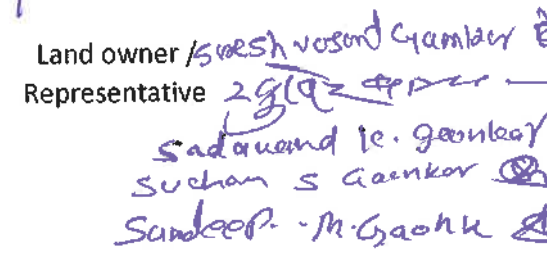 Land owner / suresh vosond Gamkar
Representative
Sadanand K. Gaonkar
Suchan S Gaonkar
Sandeep. M. Gaonk